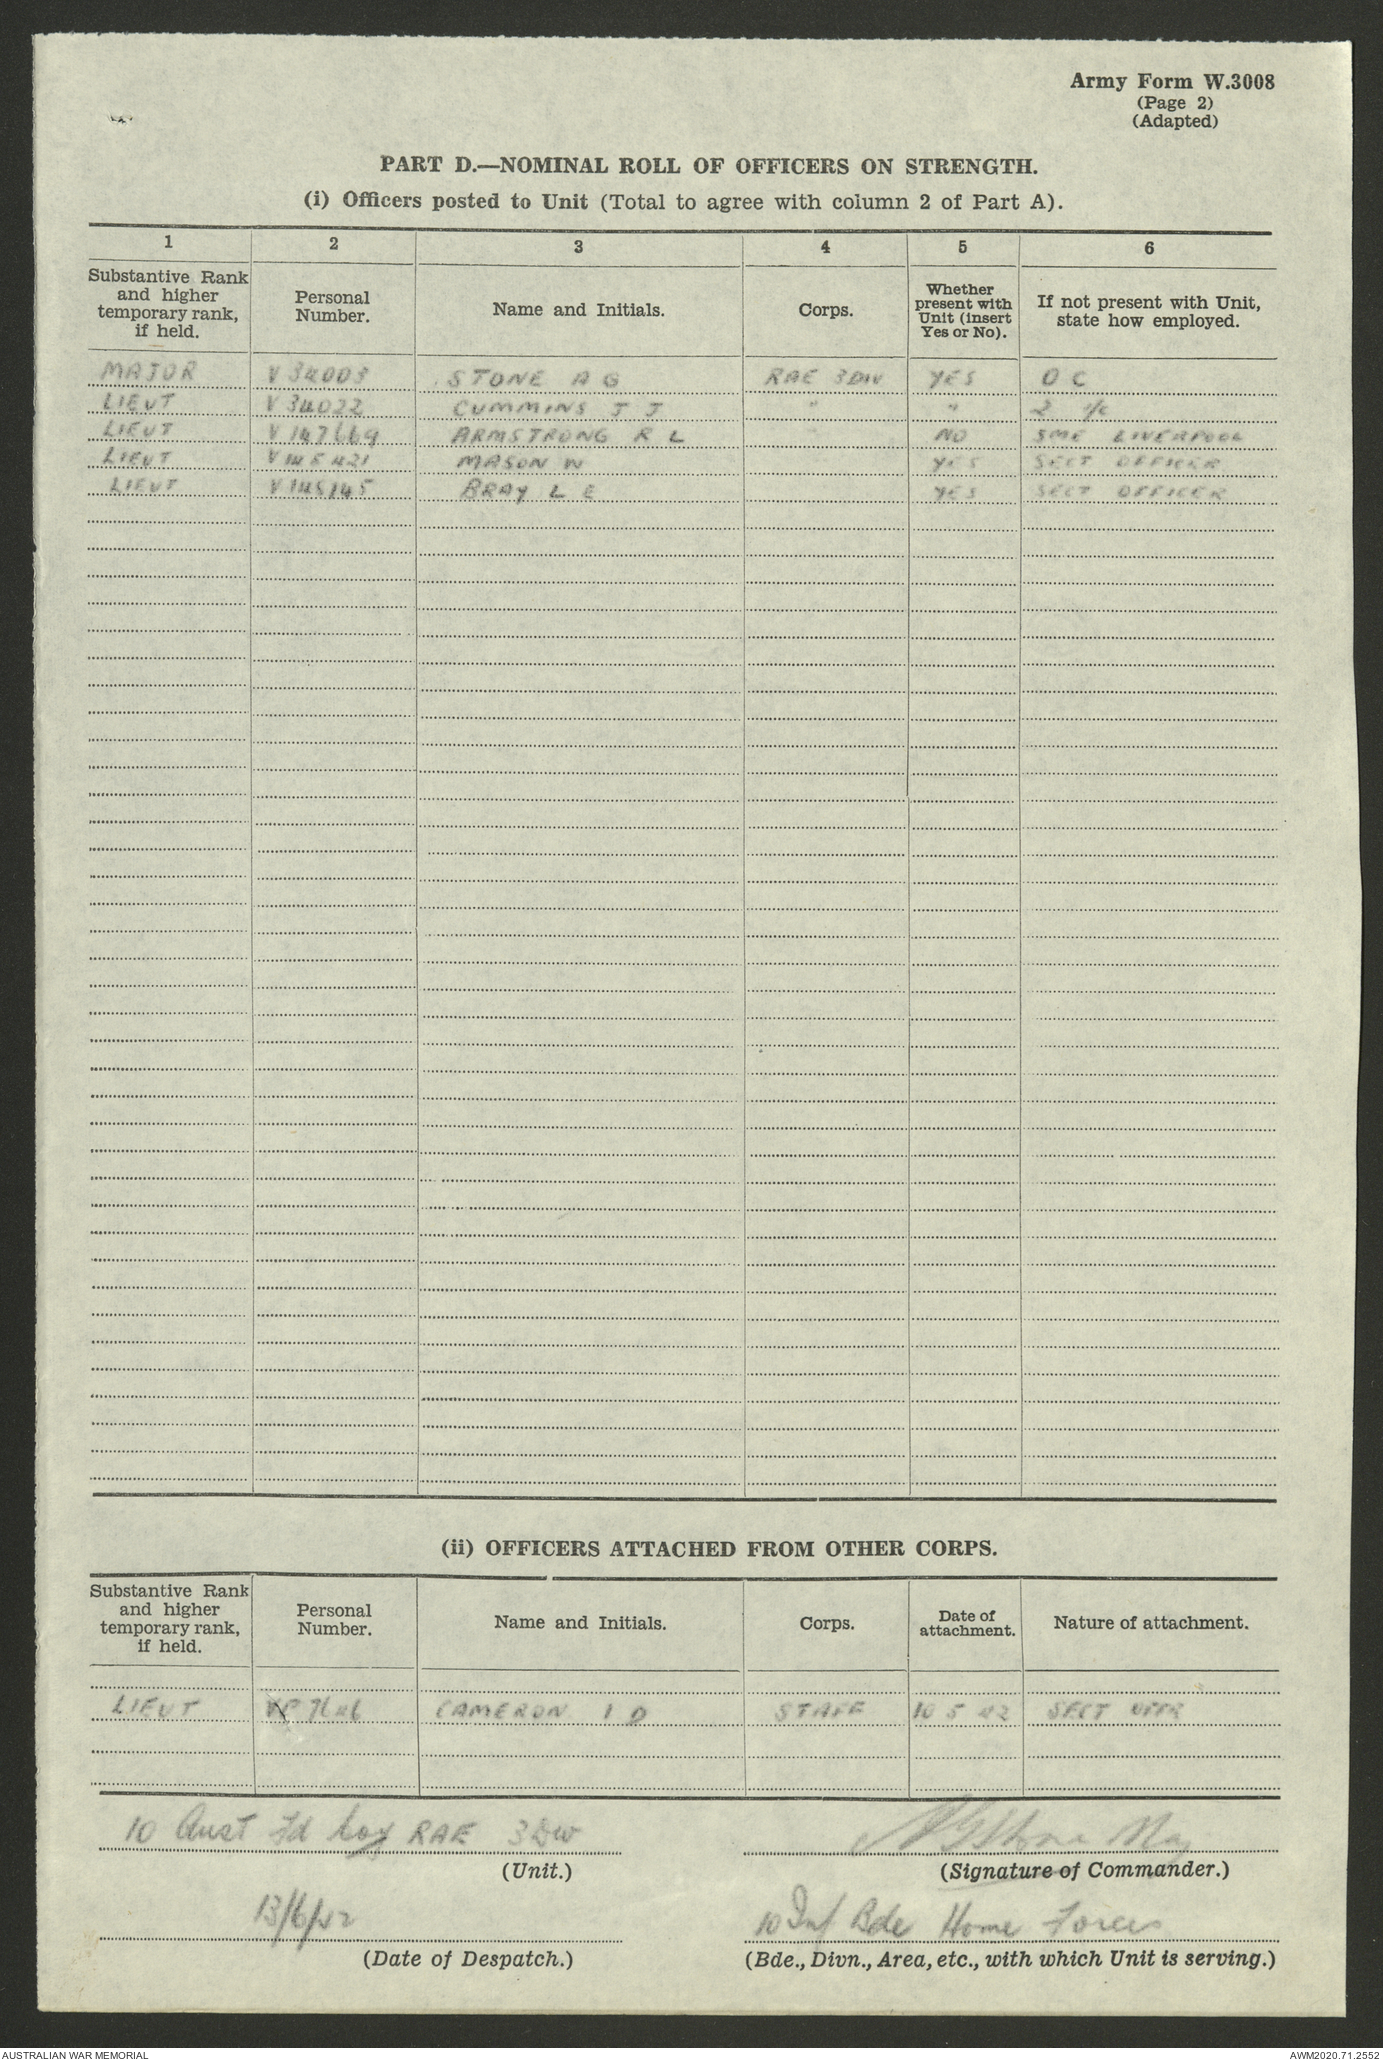 Army Form W.3008
(Page 2)
(Adapted)
PART D.—NOMINAL ROLL OF OFFICERS ON STRENGTH.
(i) Officers posted to Unit (Total to agree with column 2 of Part A).
1 2 3 4 5 6
Substantive Rank and higher temporary rank, if held. Personal Number. Name and Initials. Corps. Whether present with Unit (insert Yes or No). If not present with Unit, state how employed.
MAJOR V34003 STONE A G RAE 3DIV YES O C
LIEUT V34022 CUMMINS J J " " 2 I/C
LIEUT V147669 ARMSTRONG R L " NO SME LIVERPOOL
LIEUT MASON W YES SECT OFFICER
LIEUT V145145 BRAY L E YES SECT OFFICER
(ii) OFFICERS ATTACHED FROM OTHER CORPS.
Substantive Rank and higher temporary rank, if held. Personal Number. Name and Initials. Corps. Date of attachment. Nature of attachment.
LIEUT CAMERON I D STAFF 10 5 42 SECT OFFR
10 Aust Fd Coy RAE 3 Div
(Unit.)
AGStone Maj
(Signature of Commander.)
13/6/42
(Date of Despatch.)
10 Inf Bde Home Forces
(Bde., Divn., Area, etc., with which Unit is serving.)
AUSTRALIAN WAR MEMORIAL
AWM2020.71.2552